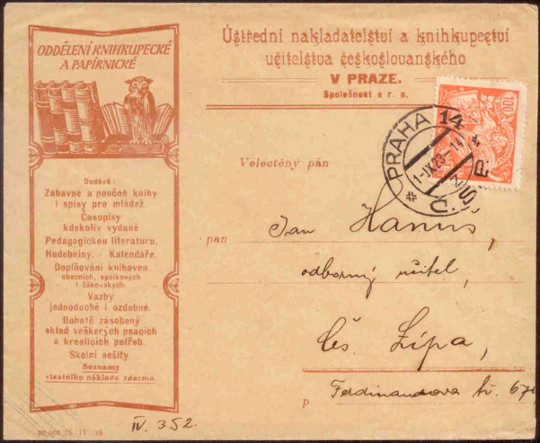 ODDĚLENÍ KNIHKUPECKÉ
A PAPÍRNICKÉ
Ústřední nakladatelství a knihkupectví
učitelstva českoslovanského
V PRAZE.
Společnost s r. o.
100
PRAHA 14
1-IX 23-14
Č.S.P.
Velectěný pán
Dodává:
Zábavné a poučné knihy
i spisy pro mládež.
Časopisy
kdekoliv vydané
Pedagogickou literaturu.
Hudebniny. - Kalendáře.
Doplňování knihoven
obecních, spolkových
i žákovských
Vazby
jednoduché i ozdobné.
Bohatě zásobený
sklad veškerých psacích
a kreslicích potřeb.
Školní sešity
Seznamy
vlastního nákladu zdarma.
pan
Jan Hanuš,
odborný učitel,
Čes. Lípa,
p. Ferdinandova tř. 670
IV. 352.